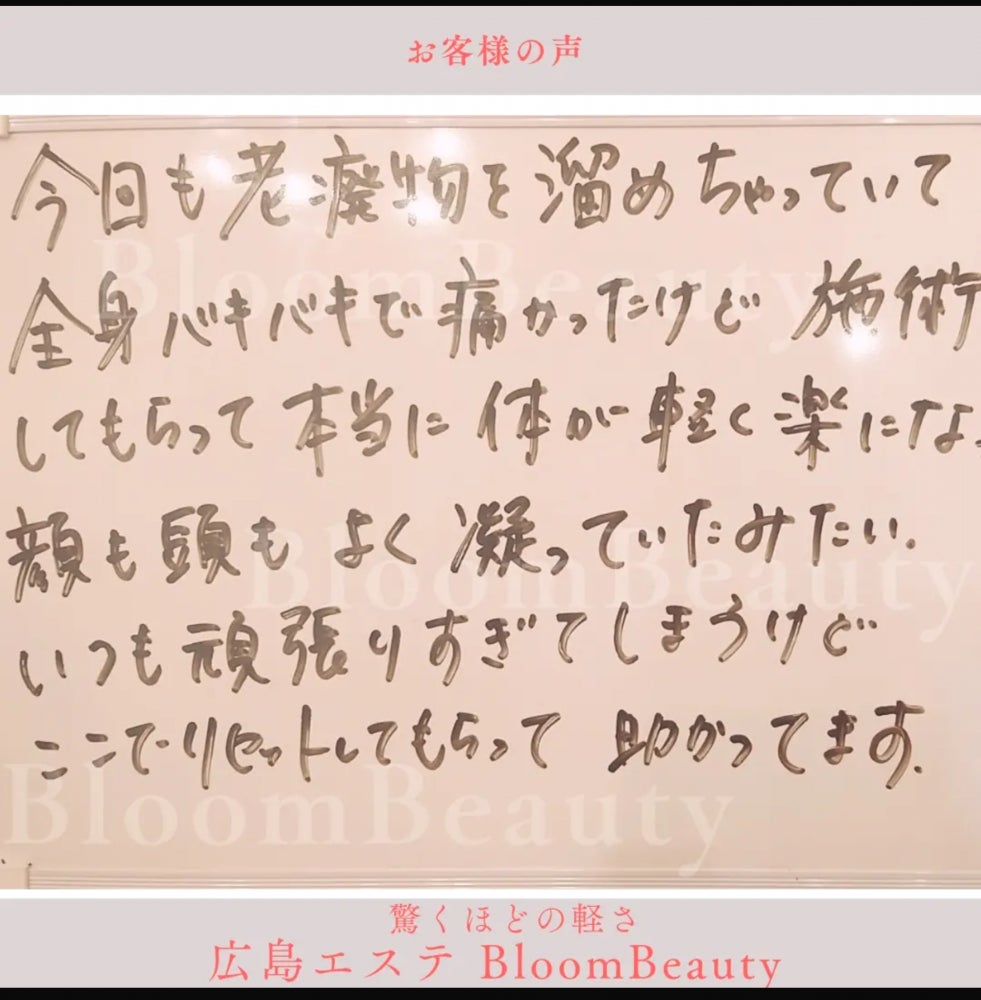 お客様の声
今日も老廃物を溜めちゃっていて
全身バキバキで痛かったけど 施術
してもらって 本当に 体が 軽く 楽にな
顔も頭も よく 凝っていたみたい.
いつも頑張りすぎてしまうけど
ここでリセットしてもらって 助かってます.
BloomBeauty
BloomBeauty
BloomBeauty
驚くほどの軽さ
広島エステ BloomBeauty